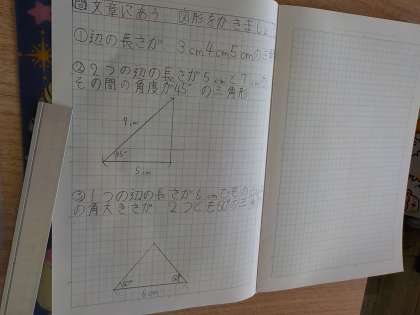 文章にあう 図形をかきましょ
①辺の長さが 3cm4cm5cmの三
②2つの辺の長さが5cmと7cmで
その間の角度が45°の三角形
7cm
45°
5cm
③1つの辺の長さが6cmで
の角大きさが 2つとも60°の三
60°
60°
6cm